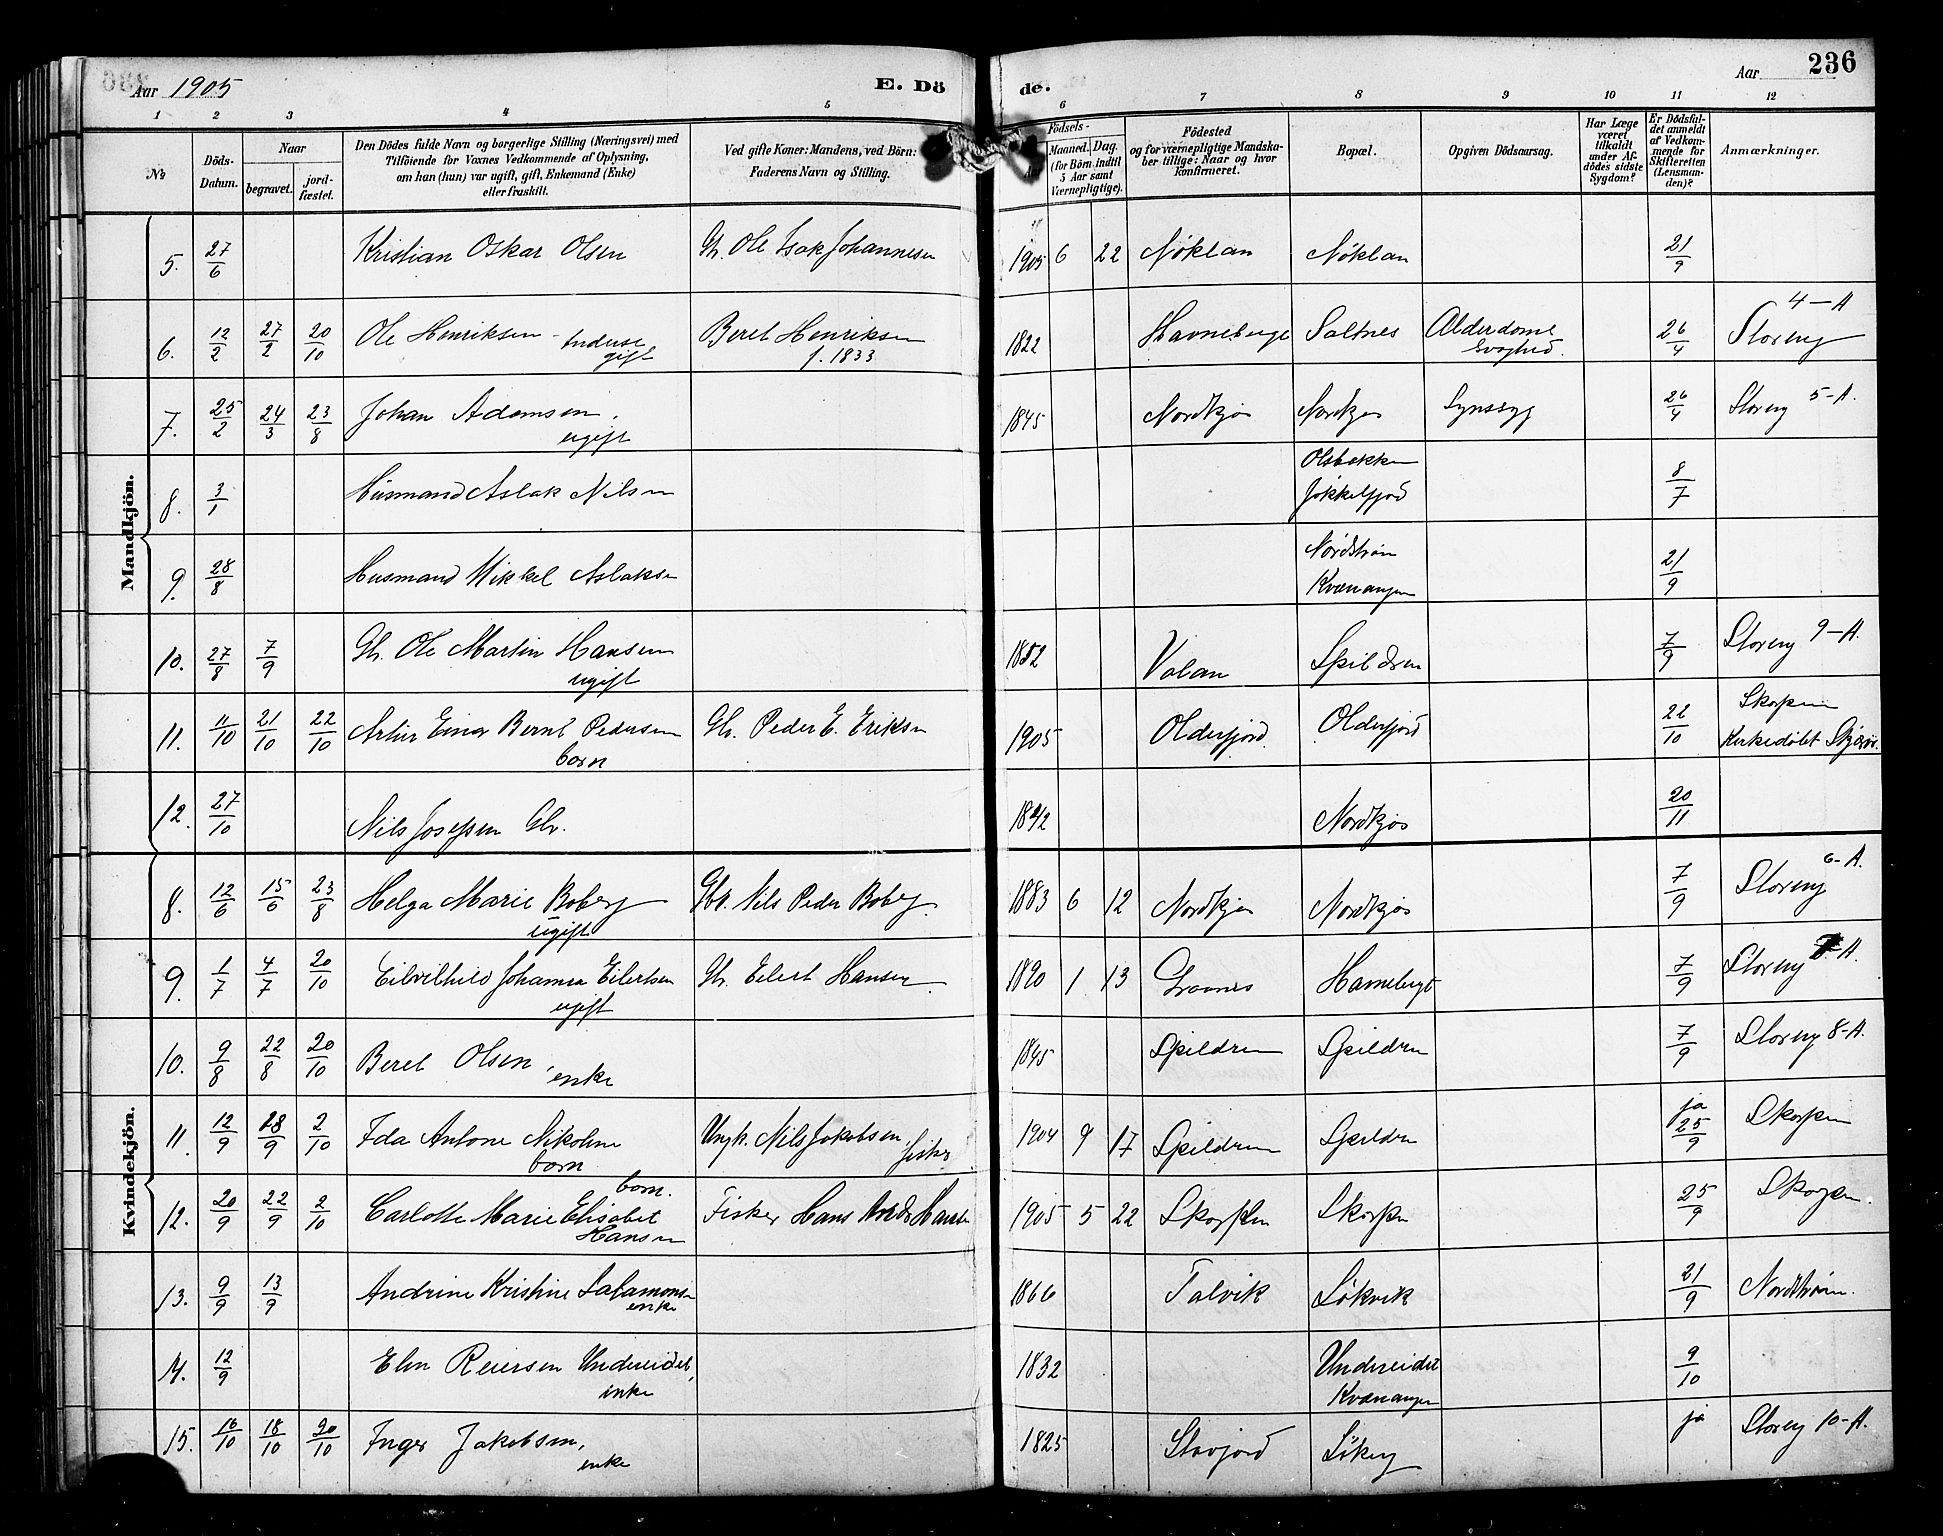 Aar 1905
E. Dö
de.
Aar
236
1 2 3 4 5 6 7 8 9 10 11 12
No
Döds-
Datum.
Naar
begravet.
jord-
fæstet.
Den Dödes fulde Navn og borgerlige Stilling (Næringsvei) med
Tilföiende for Voxnes Vedkommende af Oplysning,
om han (hun) var ugift, gift, Enkemand (Enke)
eller fraskilt.
Ved gifte Koner: Mandens, ved Börn:
Faderens Navn og Stilling.
Födsels-
Maaned. Dag.
(for Börn indtil
5 Aar samt
Værnepligtige).
Födested
og for værnepligtige Mandska-
ber tillige: Naar og hvor
konfirmeret.
Bopæl.
Opgiven Dödsaarsag.
Har Læge
været
tilkaldt
under Af-
dödes sidste
Sygdom?
Er Dödsfal-
det anmeldt
af Vedkom-
mende for
Skifteretten
(Lensman-
den)?
Anmærkninger.
Mandkjön.
5. 27/6 Kristian Oskar Olsen Gr. Ole Isak Johannesen 1905 6 22 Nøklan Nøklan 21/9
6. 12/2 27/2 20/10 Ole Henriksen gift Beret Henriksen 1822 Saltnes Alderdoms 26/4 Storeng 4-A
f. 1833 svaghed.
7. 25/2 24/3 23/8 Johan Adamsen. 1845 Nordkjos Nordkjos 26/4 Storeng 5-A.
ugift
8. 3/1 Husmand Aslak Nilsen Olsbakken 8/7
Jøkkelfjord
9. 28/8 Husmand Mikkel Aslaksen Nordstrøm 21/9
Kvænangen
10. 27/8 7/9 Gr. Ole Martin Hansen 1852 Valan Spildren 7/9 Storeng 9-A.
ugift
11. 11/10 21/10 22/10 Artur Einar Bernt Pedersen Gr. Peder E. Eriksen 1905 Olderfjord. Olderfjord 22/10 Skorpen
barn
12. 27/10 Nils Josefsen Gbr. 1842 Nordkjos 20/11
Kvindekjön.
8. 12/6 15/6 23/8 Helga Marie Boberg Gbr. Nils Peder Boberg. 1883 6 12 Nordkjos Nordkjos 7/9 Storeng 6-A.
ugift
9. 1/7 4/7 20/10 Johanna Eilertsen Gr. Eilert Hansen 1890 1 13 7/9 Storeng 7-A.
ugift
10. 9/8 22/8 20/10 Beret Olsen, 1845 Spildren Spildren 7/9 Storeng 8-A.
enke
11. 12/9 28/9 2/10 Ida Antone Nikoline Ungk. Nils Jakobsen, fisker 1904 9 17 Spildren Spildren ja 25/9 Skorpen
barn
12. 20/9 22/9 2/10 Carlotte Marie Elisabet barn. Fisker Hans 1905 5 22 Skorpen Skorpen 25/9 Skorpen.
Hansen
13. 9/9 13/9 Andrine Kristine Salamonsen 1866 Talvik Søkvik 21/9 Nordstrøm.
enke
14. 12/9 Elen Reiersen Undereidet, 1832 Undereidet 9/10
enke Kvænangen
15. 16/10 18/10 20/10 Inger Jakobsen, 1825 ja Storeng 10-A.
enke